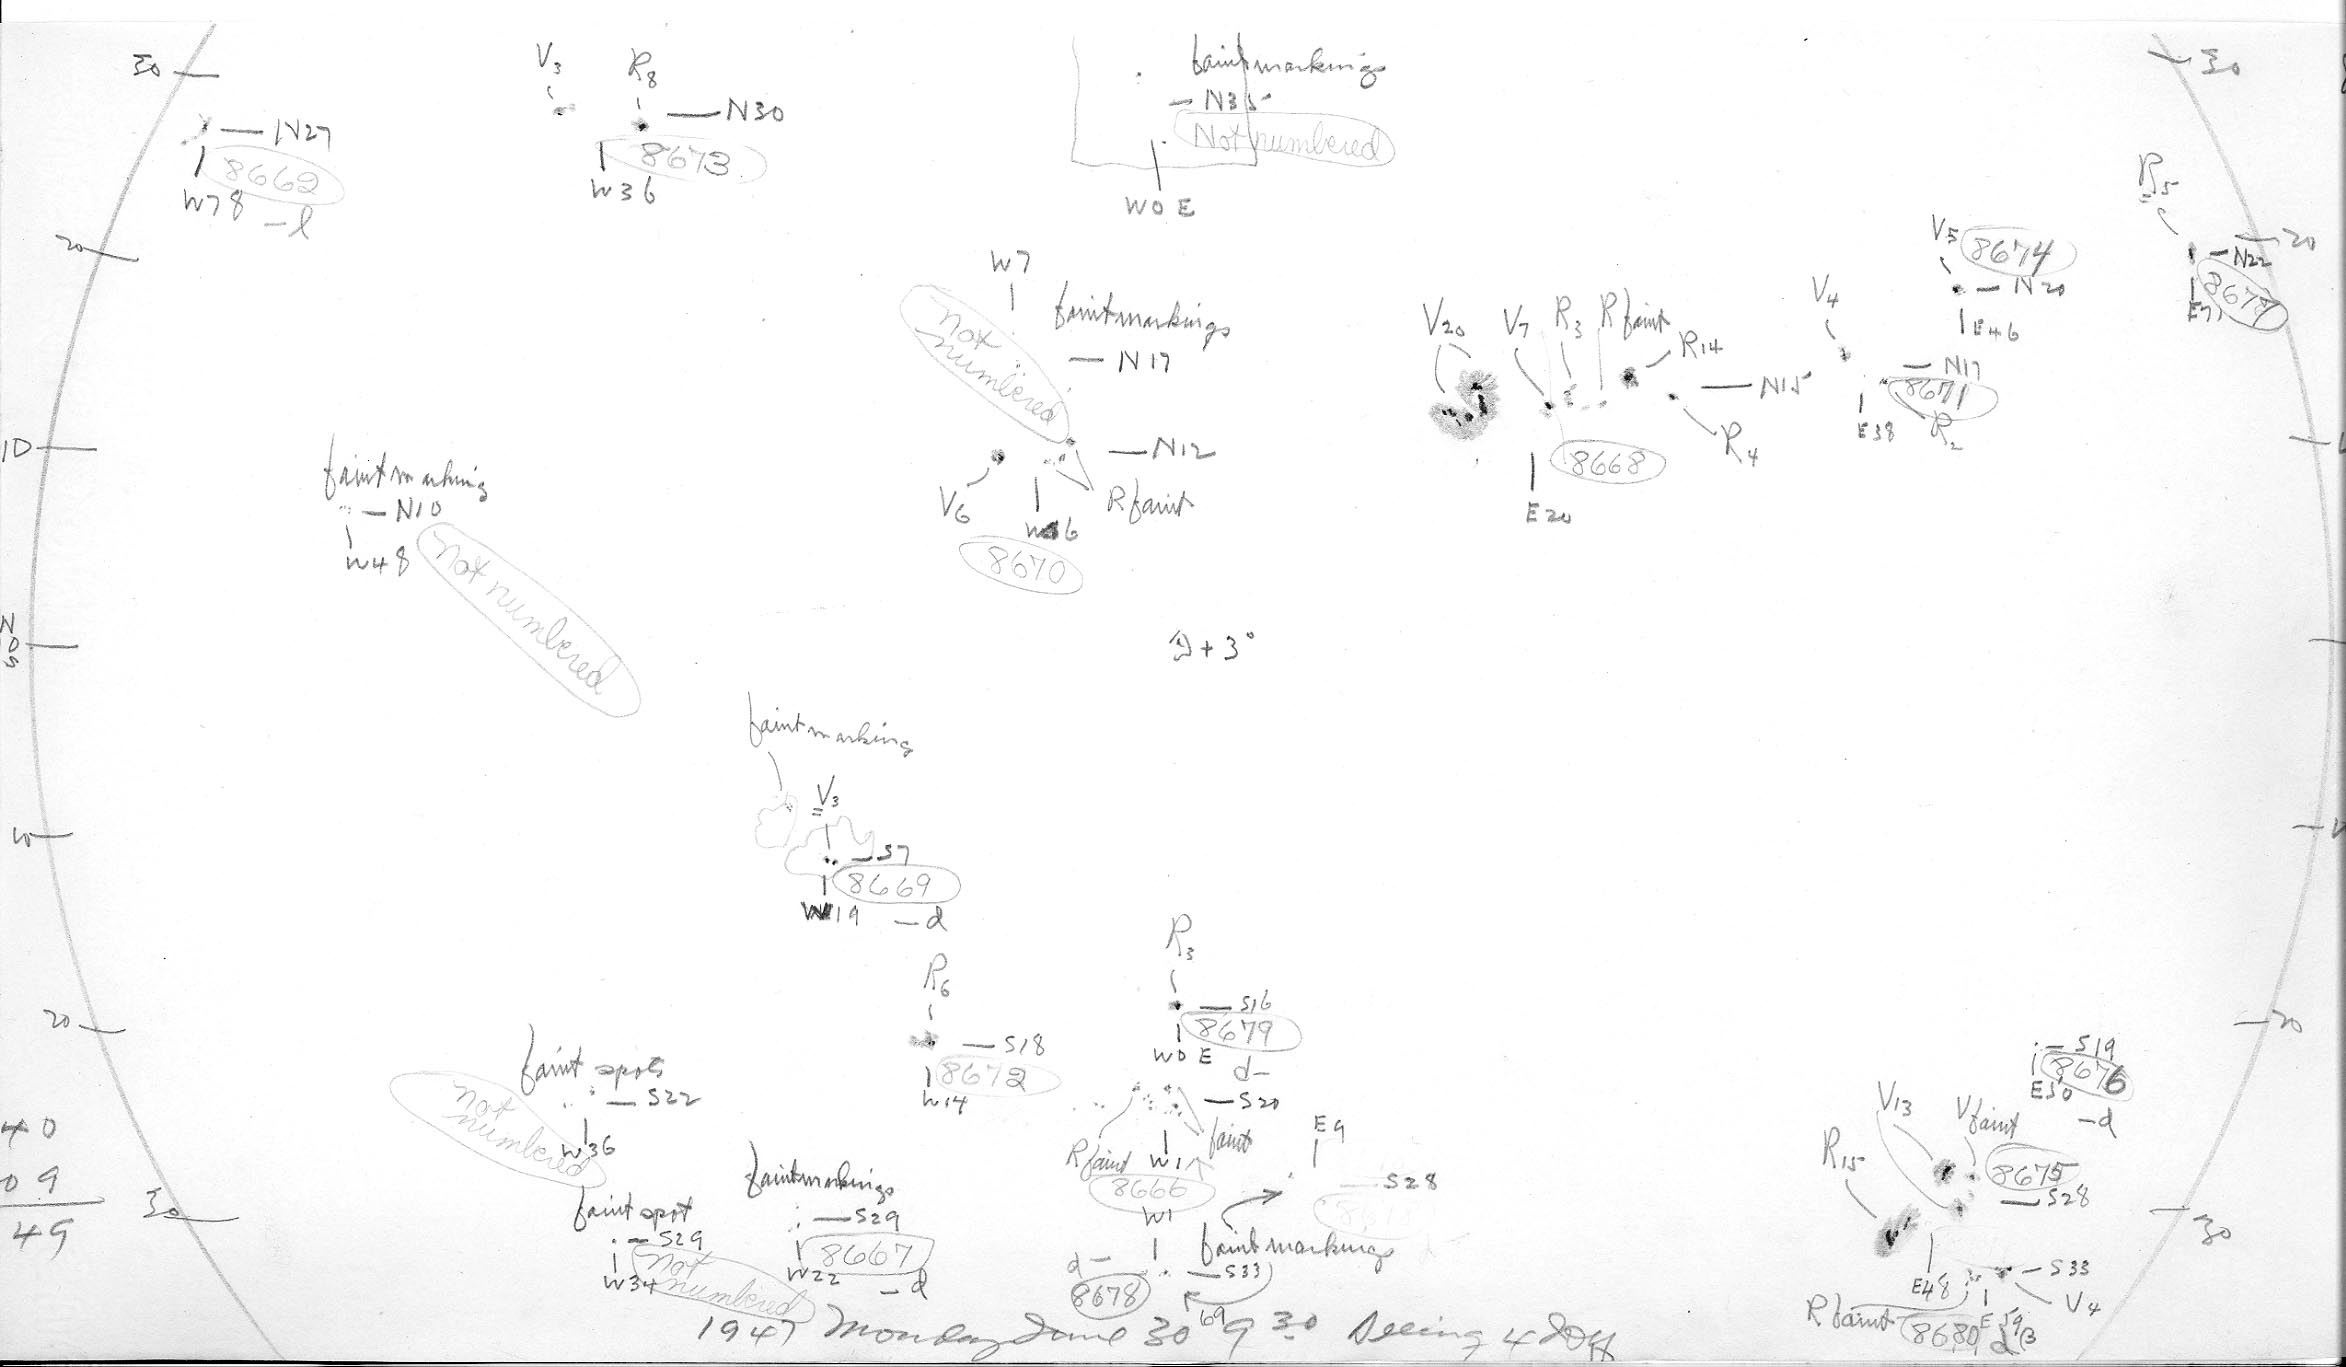 30
V3
R8
N30
8673
W36
N27
8662
W78
-l
faint markings
N35
Not numbered
W0E
30
R5
20
N22
E71
20
W7
not numbered
faint markings
N17
V20
V7
R3
R faint
R14
N15
R4
8668
E20
V4
V5
8674
N20
E46
N17
8671
E38
R2
10
faint marking
N10
W48
not numbered
N12
V6
R faint
8670
N
0
S
+3°
faint marking
V3
S7
8669
W19
-d
10
20
R6
S18
8672
W14
R3
S16
8679
W0E
d-
S20
R faint
faint
W1
8666
faint spots
S22
not numbered
W36
faint spot
S29
W34
not numbered
faint markings
S29
8667
W22
-d
E9
S28
W1
faint markings
S33
d-
8678
20
S19
8676
E50
-d
V13
V faint
R15
8675
S28
E48
S33
V4
R faint
8680
30
40
09
49
30
1947 Monday June 30 9 30 Seeing 4